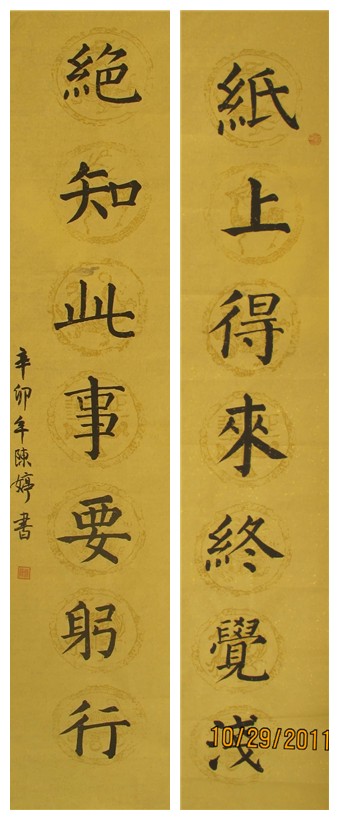 紙上得來終覺淺
絕知此事要躬行
辛卯年陳婷書
10/29/2011